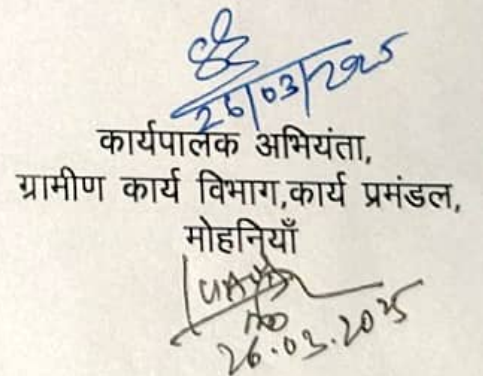 26/03/2025
कार्यपालक अभियंता,
ग्रामीण कार्य विभाग,कार्य प्रमंडल,
मोहनियाँ
26.03.2025